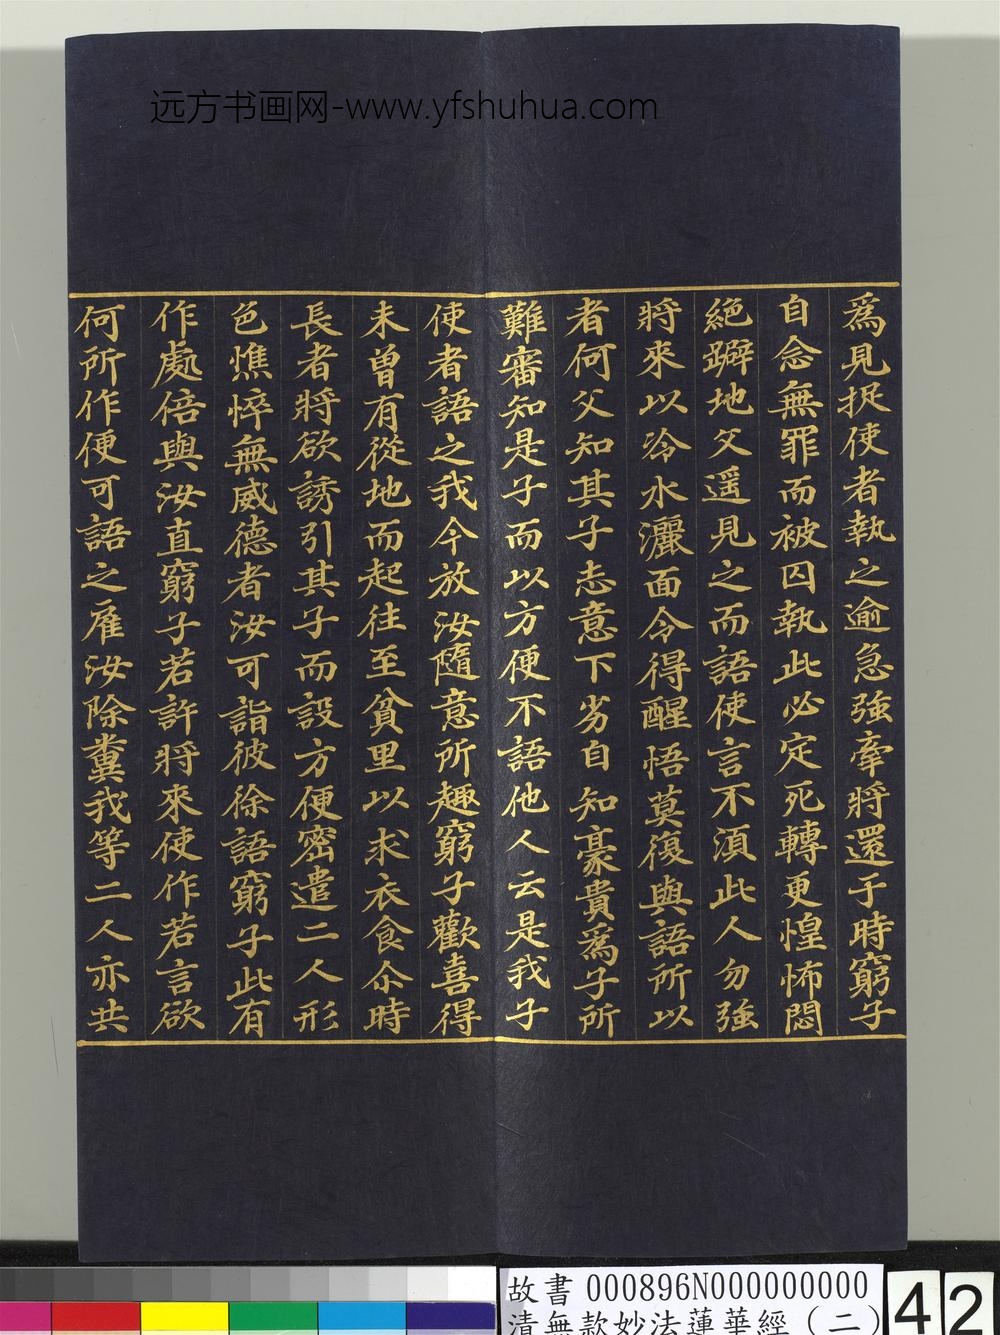 远方书画网-www.yfshuhua.com
為見捉使者執之逾急強牽將還于時窮子
自念無罪而被囚執此必定死轉更惶怖悶
絕躃地父遥見之而語使言不須此人勿強
將來以冷水灑面令得醒悟莫復與語所以
者何父知其子志意下劣自知豪貴為子所
難審知是子而以方便不語他人云是我子
使者語之我今放汝隨意所趣窮子歡喜得
未曾有從地而起往至貧里以求衣食尒時
長者將欲誘引其子而設方便密遣二人形
色憔悴無威德者汝可詣彼徐語窮子此有
作處倍與汝直窮子若許將來使作若言欲
何所作便可語之雇汝除糞我等二人亦共
故書 000896N000000000
清無款妙法蓮華經(二)
42